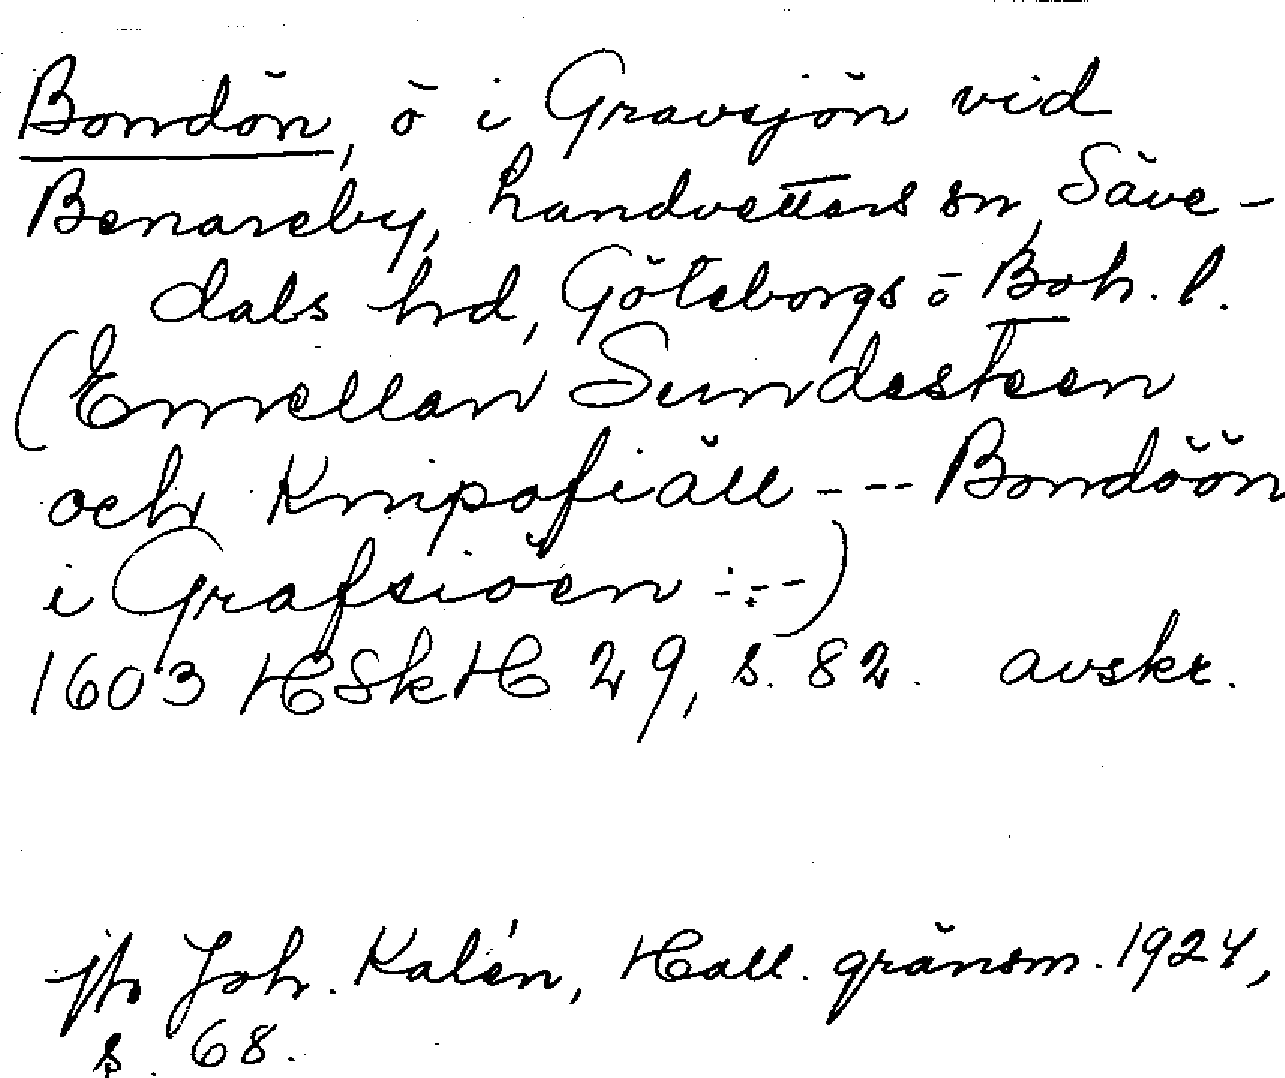 Bondön, ö i Gravsjön vid
Benareby, Landvetters sn, Säve-
dals hd, Göteborgs o Boh. l.
(Emellan Sundesteen
och Knipofiäll --- Bondöön
i Grafsiöen ---)
1603 HSkH 29, s. 82. avskr.
jfr Joh. Kalén, Hall. gränsm. 1924,
s. 68.